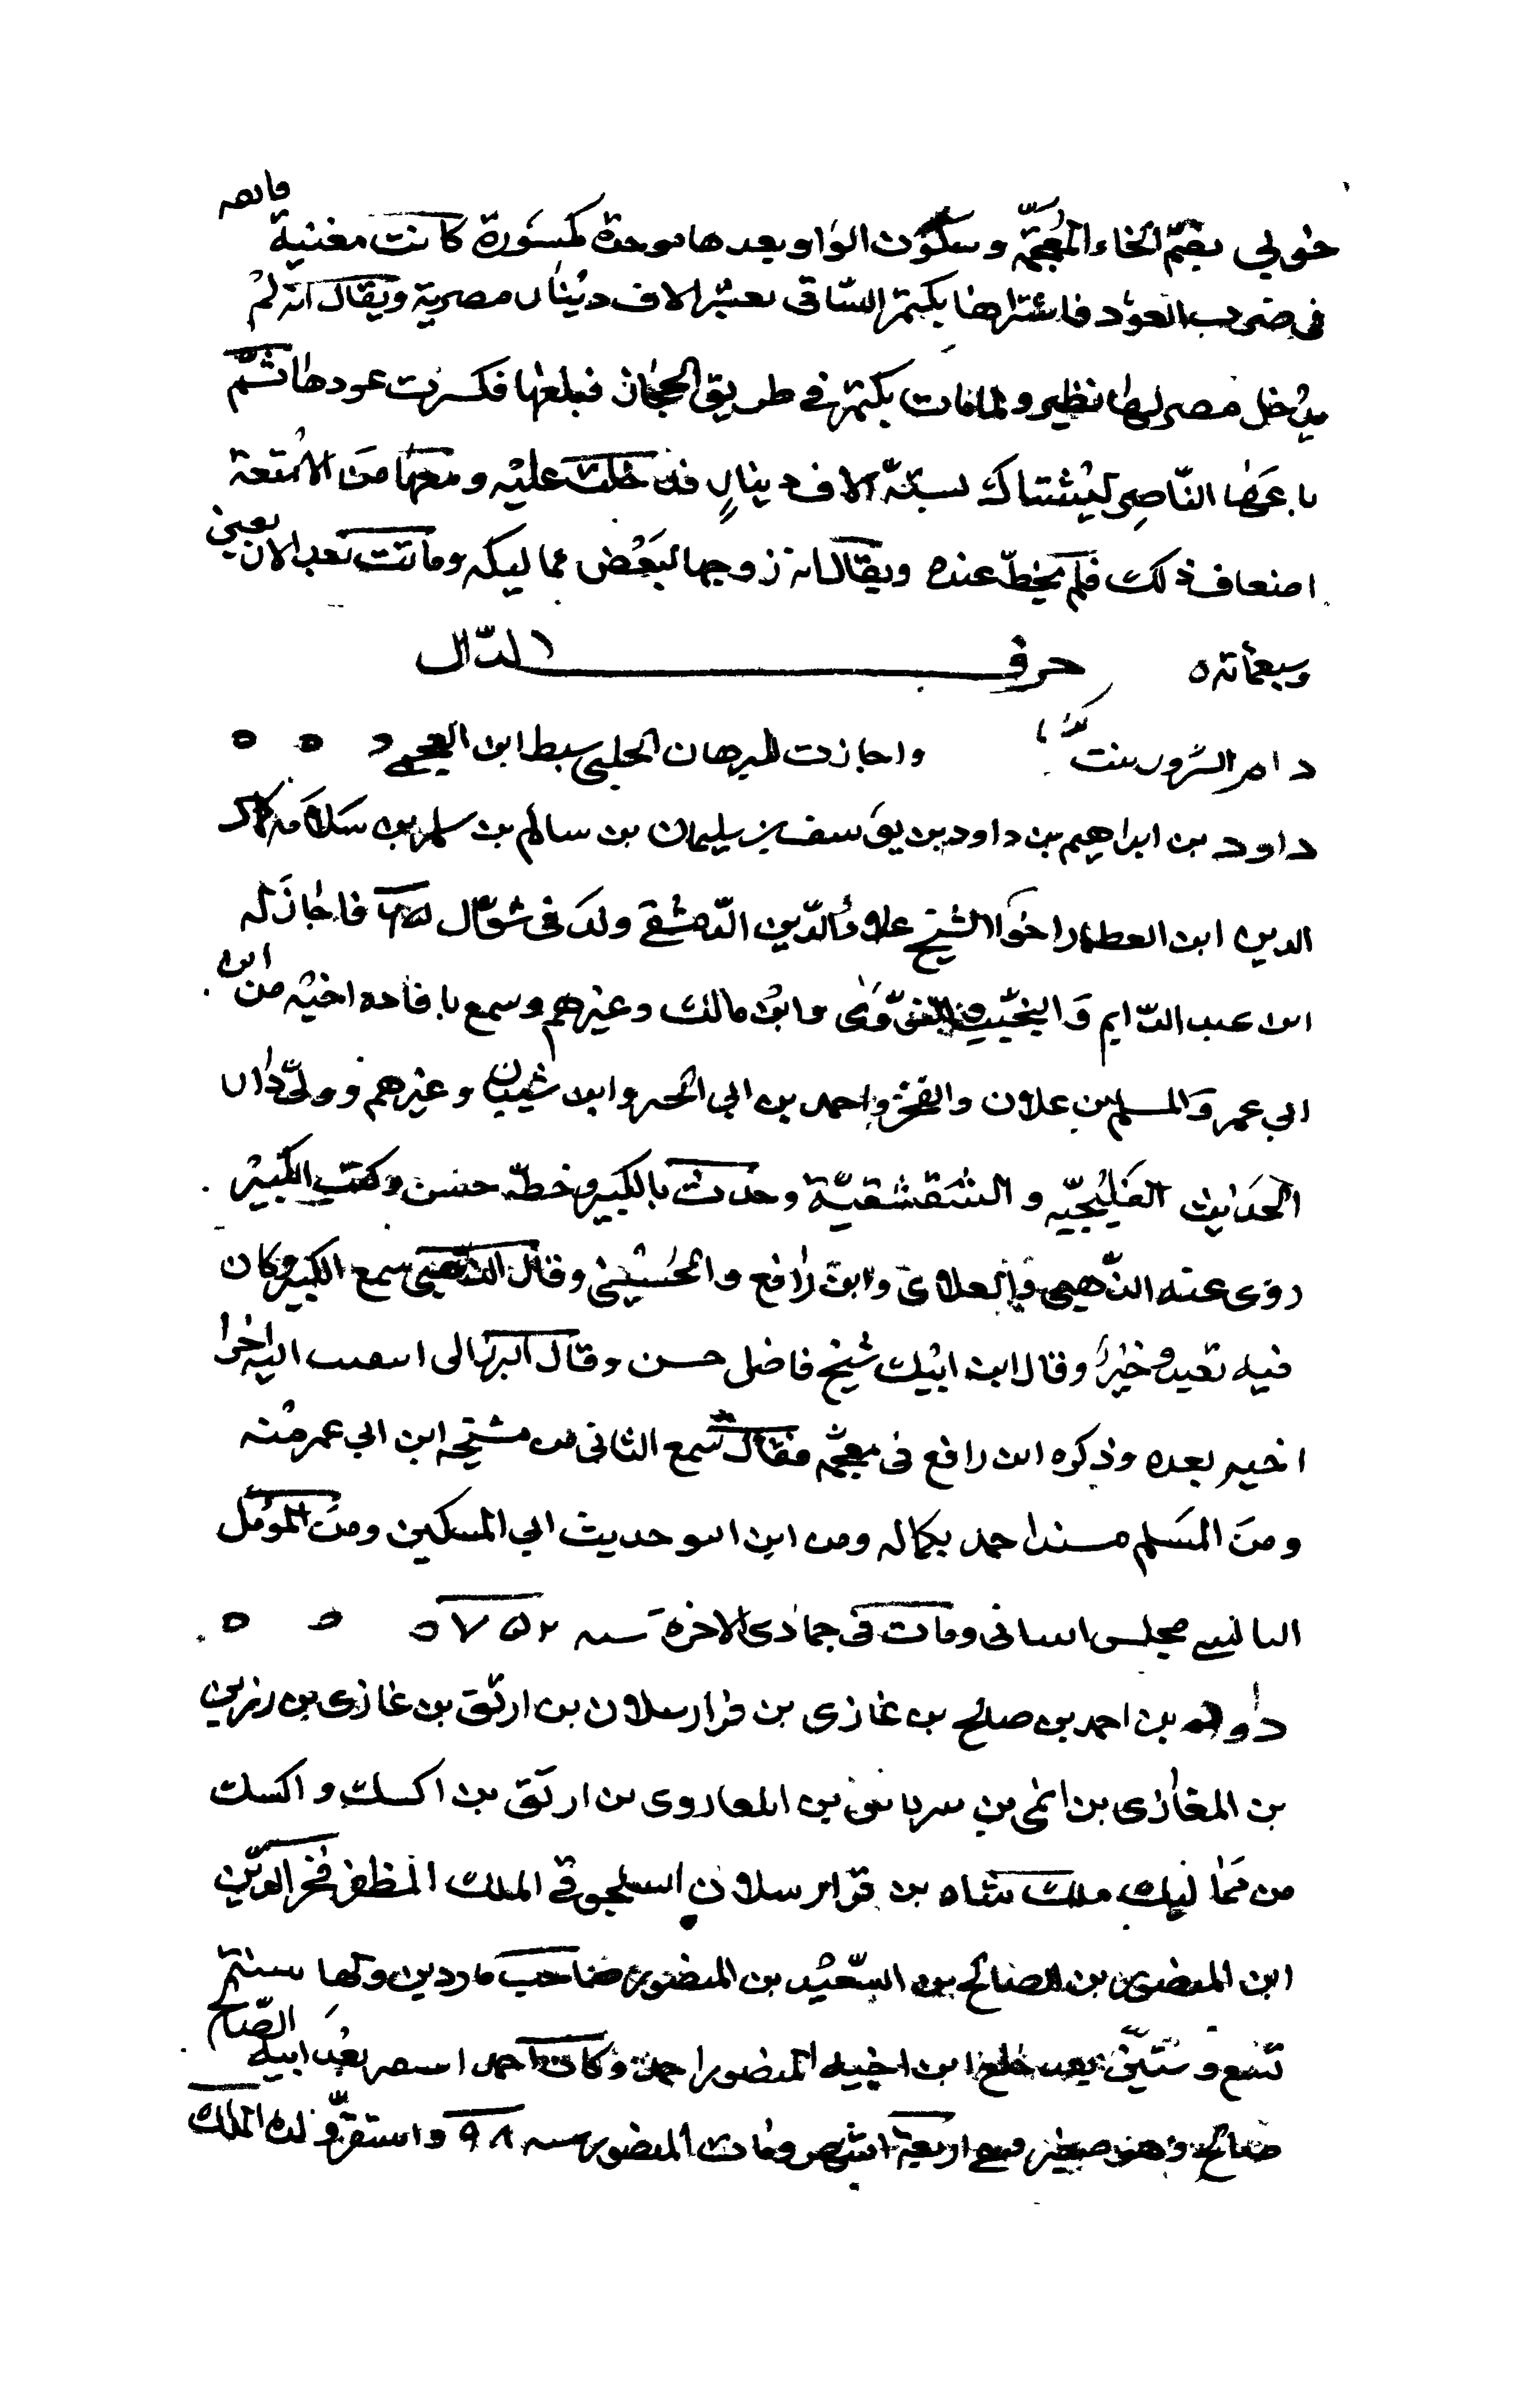 خوبي بضم الخاء المعجمة وسكون الواو بعدها موحدة مكسورة كانت مغنية فائقة
في ضرب العود فاشتراها بكتمر الساقي بعشرة الاف دينار مصرية ويقال انه لم
يدخل مصر لها نظير ولما مات بكتمر في طريق الحجاز فبلغها فكسرت عودها ثم
باعها الناصر لبشتاك بستة الاف دينار فدخلت عليه ومعها من الامتعة
اضعاف ذلك فلم تحظ عنده ويقال انه زوجها لبعض مماليكه وماتت بعد الاربعين
وسبعمائة ه حرف الدال
دام السرور بنت واجازت للبرهان الحلبي سبط ابن العجمي
داود بن ابراهيم بن داود بن يوسف بن سليمان بن سالم بن مسلم بن سلامة جمال
الدين ابن العطار اخو الشيخ علاء الدين الدمشقي ولد في شوال ٦٦٥ فاجاز له
ابن عبد الدايم والنجيب والنووي وابن مالك وغيرهم وسمع بافادة اخيه من ابن
ابي عمر والمسلم بن علان والفخر واحمد بن ابي الخير وابن شيبان وغيرهم وولي دار
الحديث القليجية والشقشقية وحدث بالكثير وخطه حسن وكتب الكثير
روى عنه الذهبي والعلائي وابن رافع والحسيني وقال الذهبي سمع الكثير وكان
فيه تعبد وخير وقال ابن ايبك شيخ فاضل حسن وقال البرزالي اليه اجزاء
اخيه بعده وذكره ابن رافع في معجمه فقال سمع الثاني من مشيخة ابن ابي عمر منه
ومن المسلم مسند احمد بكماله ومن ابن حديث ابي المسكين ومن المؤمل
البالسي مجلس ومات في جمادى الاخرة سنه ٧٥٢ ه
داود بن احمد بن صالح بن غازي بن قرا ارسلان بن ارتق بن غازي بن
بن المغازي بن بن بن بن ارتق بن اكسك واكسك
من مماليك ملك شاه بن قرا ارسلان السلجوقي الملك المظفر فخر الدين
ابن المنصور بن الصالح بن السعيد بن المنصور صاحب ماردين وليها سنة
تسع وستين بعد خلع ابن اخيه المنصور احمد وكان احمد استقر بعد ابيه الصالح
صالح وهو صغير فبقي اربعة اشهر ومات المنصور سنه واستقر ولده الملك